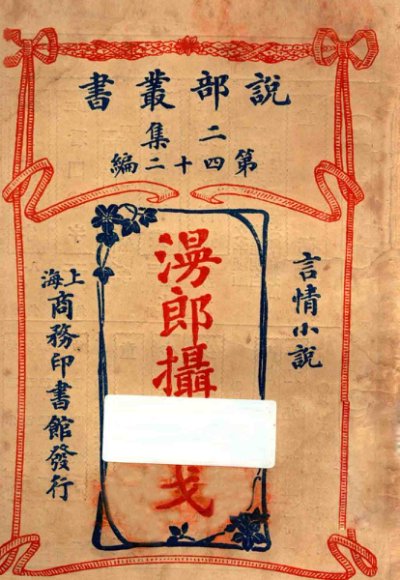 說部叢書
二集
第四十二編
言情小說
漫郎攝
戈
上海商務印書館發行